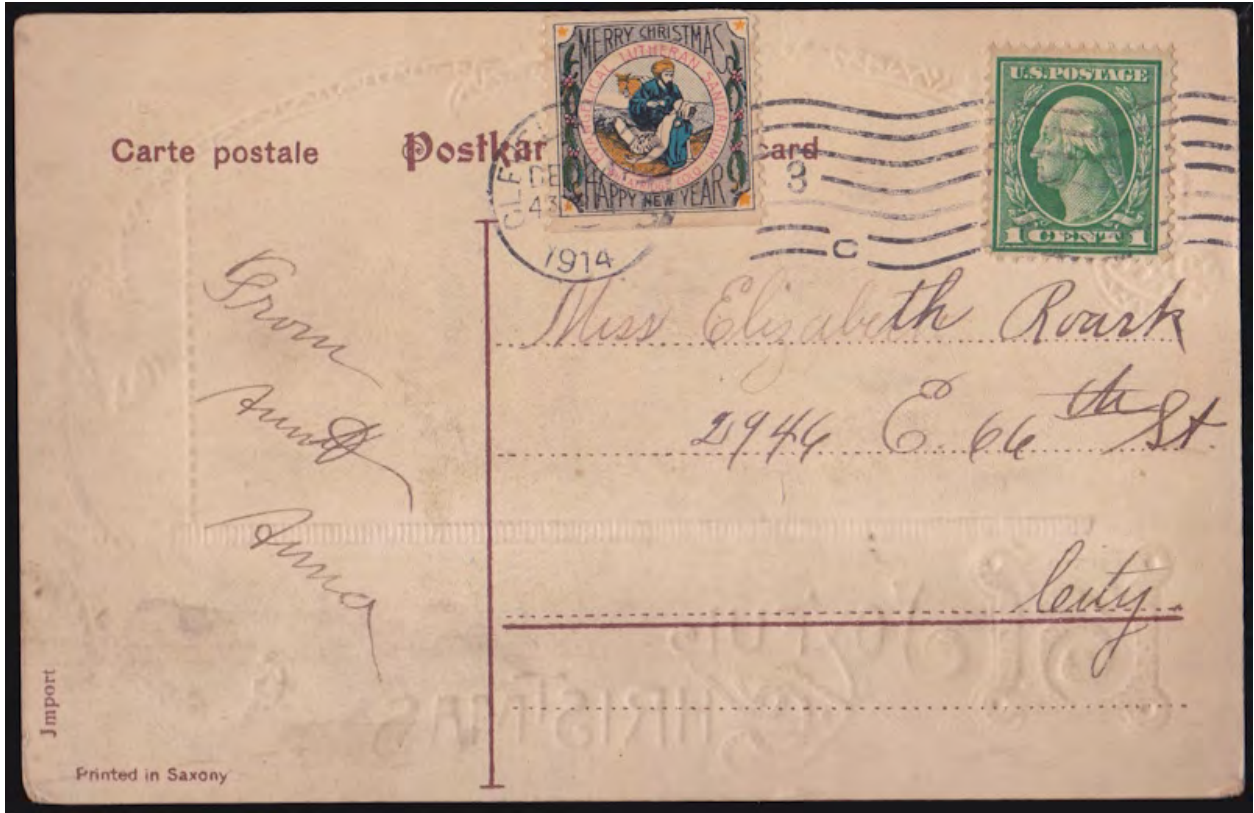 Carte postale
Postkar
card
MERRY CHRISTMAS
EVANGELICAL LUTHERAN SANITARIUM
COLO
HAPPY NEW YEAR
U.S. POSTAGE
1 CENT 1
CLE
DE
43
1914
3
C
From
Aunt
Anna
Miss Elizabeth Roark
2946 E. 66th St.
City
CHRISTMAS
Import
Printed in Saxony